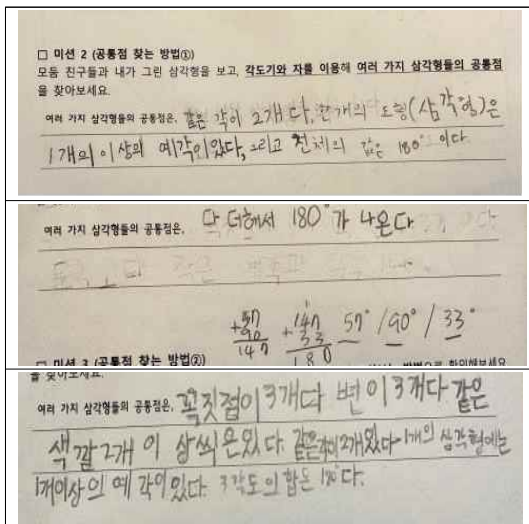 □ 미션 2 (공통점 찾는 방법①)
모둠 친구들과 내가 그린 삼각형을 보고, 각도기와 자를 이용해 여러 가지 삼각형들의 공통점
을 찾아보세요.
여러 가지 삼각형들의 공통점은, 같은 각이 2개다, 한개의 도형(삼각형)은
1개의 이상의 예각이있다, 그리고 전체의 값은 180°이다.
여러 가지 삼각형들의 공통점은, 다 더해서 180°가 나온다
+57
90
147
+147
33
180
57° / 90° / 33°
□ 미션 3 (공통점 찾는 방법②)
을 찾아보세요.
여러 가지 삼각형들의 공통점은, 꼭짓점이 3개다 변이 3개다 같은
색깔 2개 이 상씩은있다. 같은각이 2개있다 1개의 삼각형에는
1개이상의 예각이있다. 3각도의 합은 180°다.